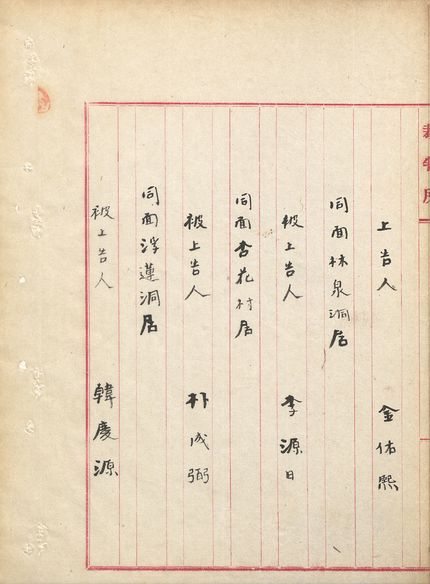 裁判所
上告人 金佑熙
同面林泉洞居
被上告人 李源日
同面杏花村居
被上告人 朴成弼
同面浮蓮洞居
被上告人 韓慶源